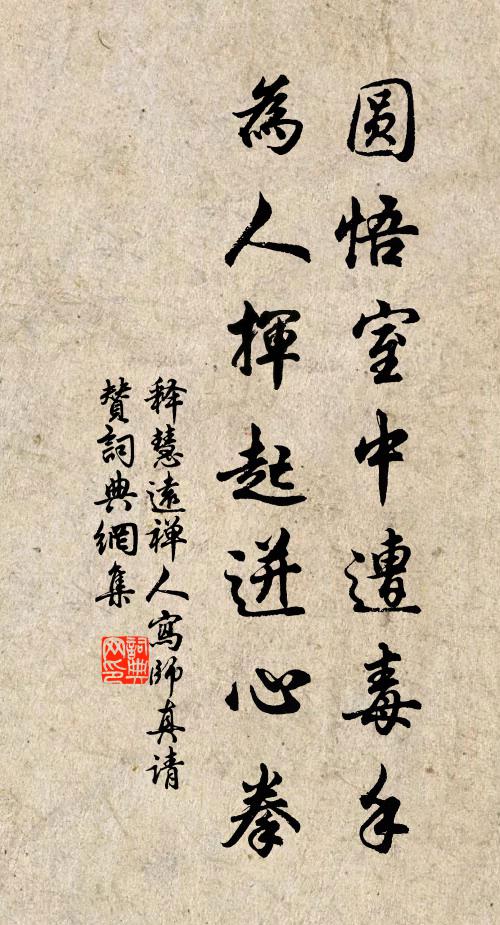 圆悟室中遭毒手
為人揮起迸心拳
释慧遠禅人寫師真请
賛詞典網集
詞典网印